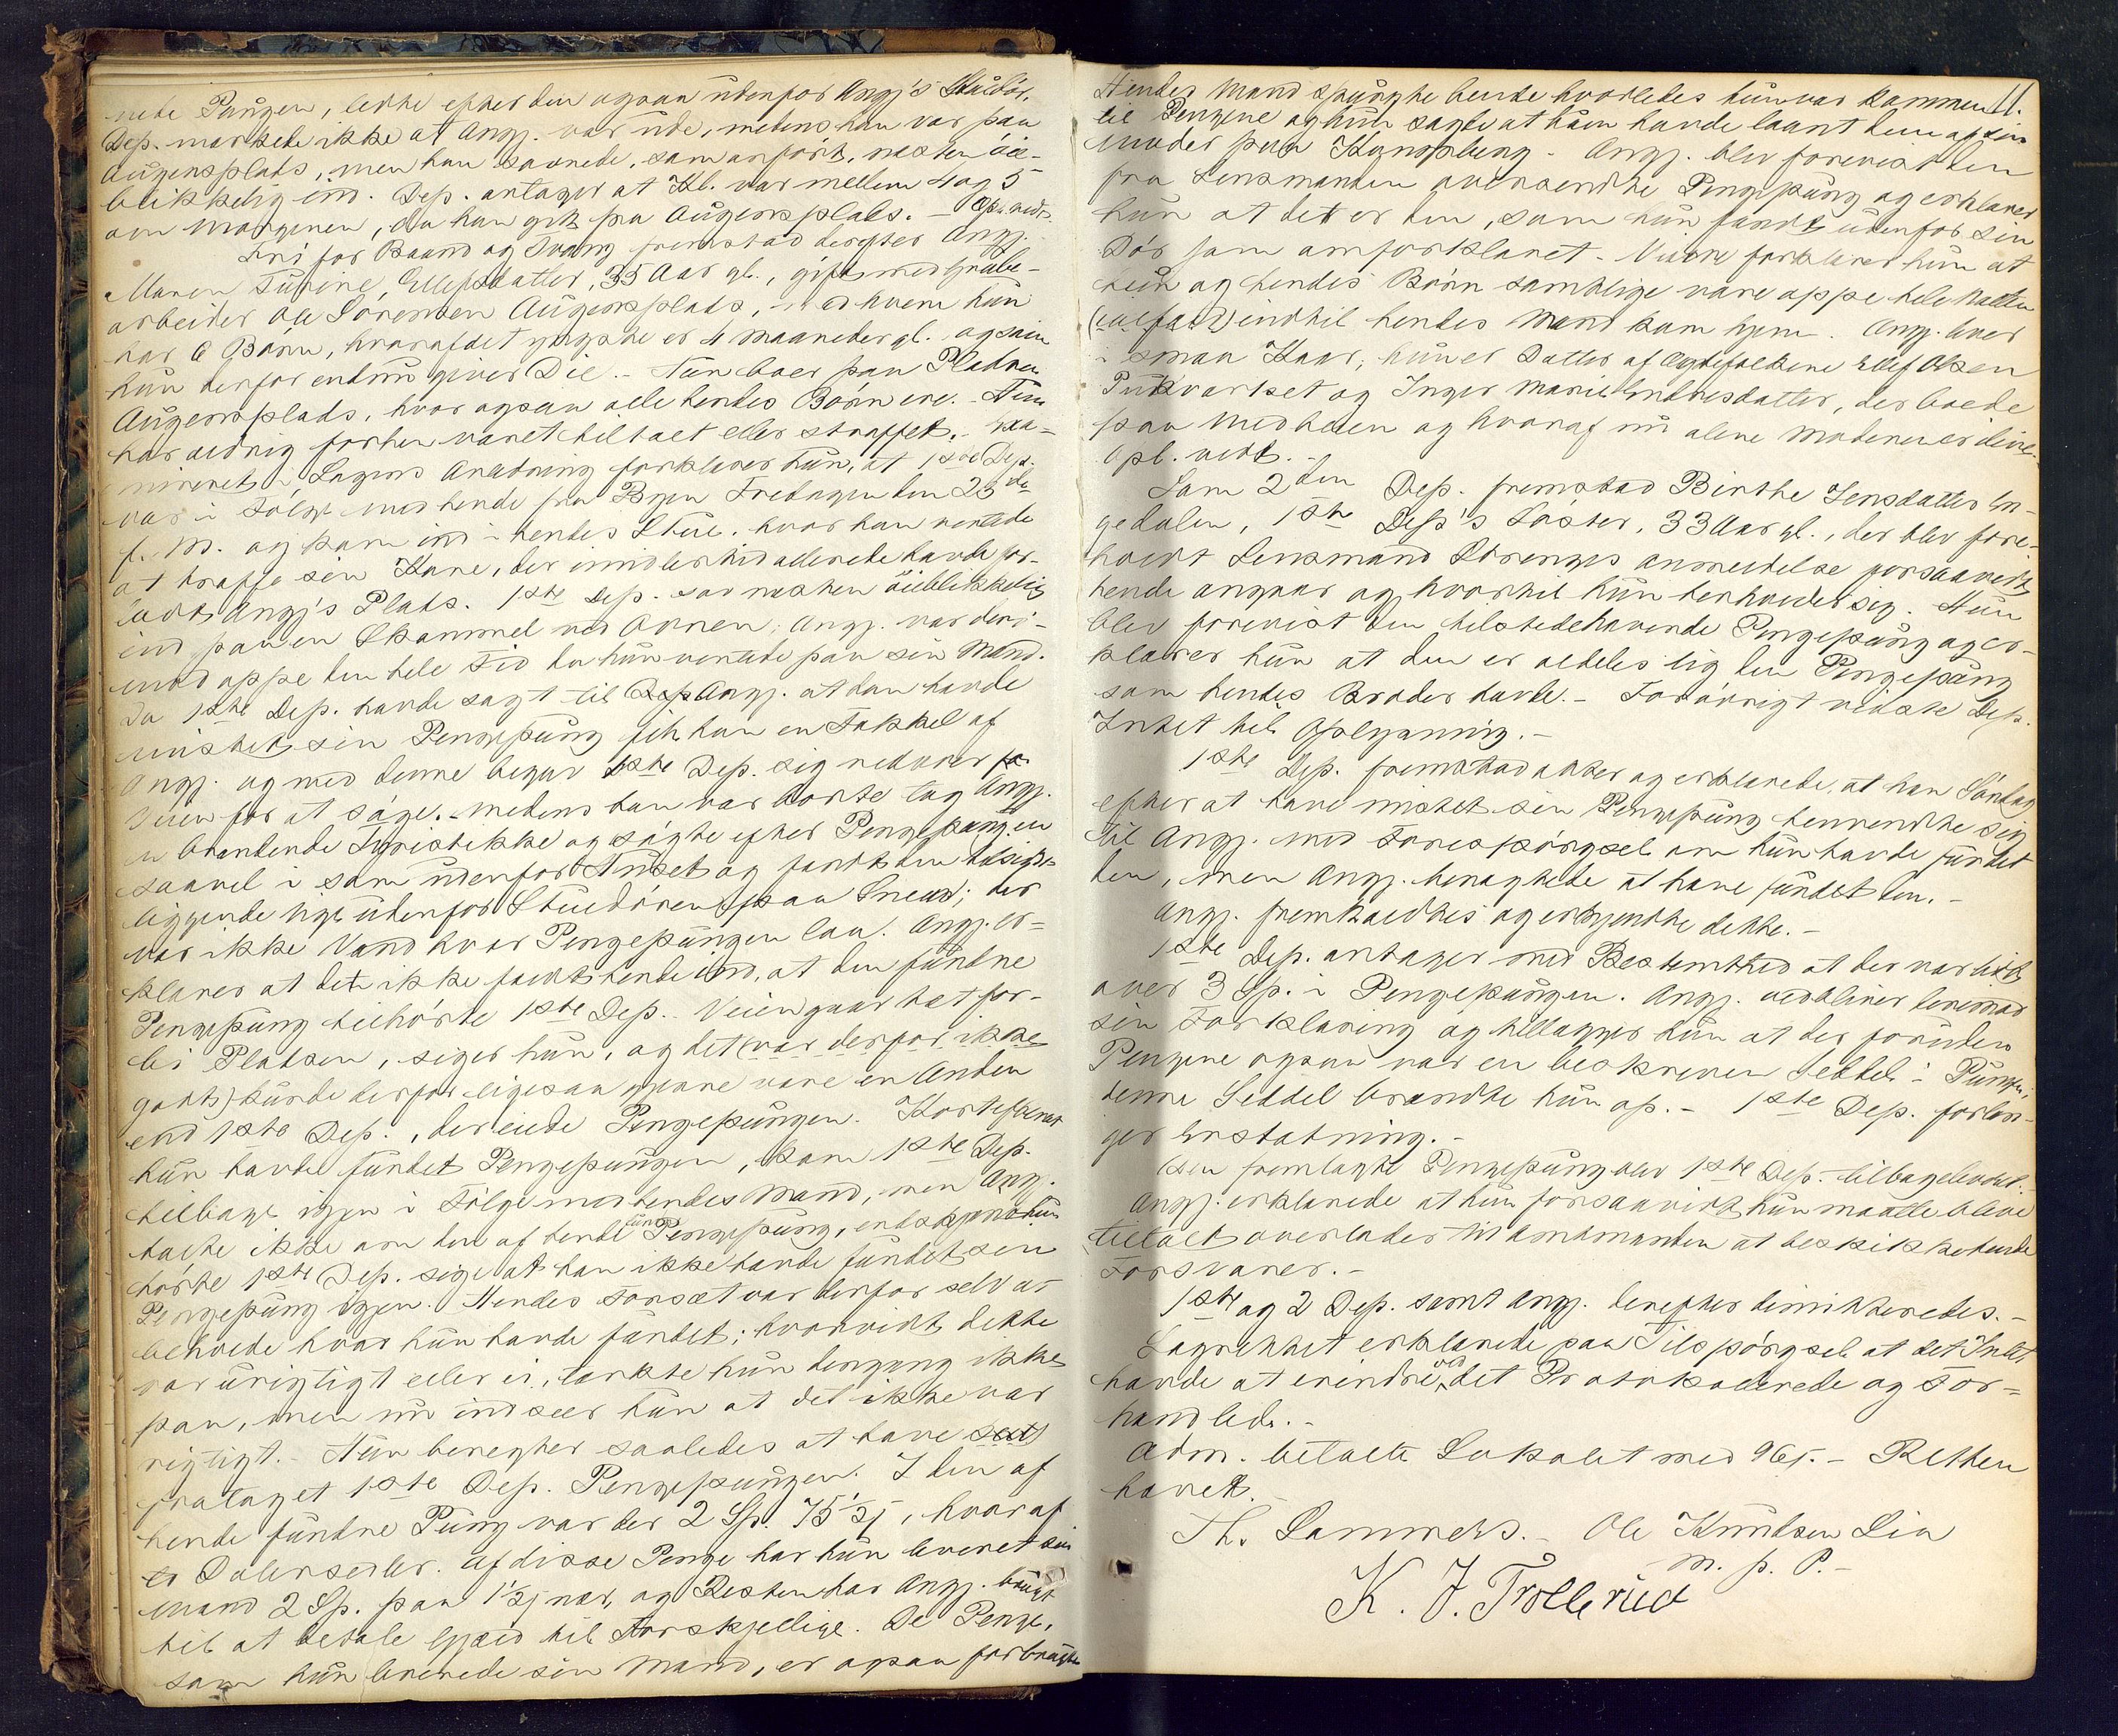 nede Pungen, ledte efter den ogsaa udenfor Ang's Stuedör.
Dep. mærkede ikke at Angj. var ude, medens han var paa
Augensplads, men han savnede, som anfört, næsten öie-
blikkelig ind. Dep. antager at Kl. var mellem 4 og 5
om Morgenen, da han gik fra Augensplads. - Opl. vedt.
Fri for Baand og Tvang fremstod derefter Angj.
Maren Turine Ellefsdatter, 35 Aar gl., gift med Grube-
arbeider Ole Sörensen Augensplads, med hvem hun
har 6 Börn, hvoraf det yngste er 4 Maaneder gl. og som
hun derfor endnu giver Die. - Hun boer paa Pladsen
Augensplads, hvor ogsaa alle hendes Börn ere. - Hun
har aldrig forhen været tiltalt eller straffet. - Exa-
mineret i Sagens Anledning forklarer hun, at 1ste Dep.
var i Fölge med hende fra Byen Fredagen den 23de
f. M. og kom ind i hendes Stue, hvor han ventede
at træffe sin Kone, der imidlertid allerede havde for-
ladt Angj's Plads. 1ste Dep. sov næsten öieblikkelig
ind paa en Skammel ved Arnen; Angj. var deri-
mod oppe den hele Tid da hun ventede paa sin Mand.
Da 1ste Dep. havde sagt til Dep Angj. at han havde
mistet sin Pengepung fik han en Fakkel af
Angj. og med denne begav 1ste Dep. sig nedover
Veien for at söge. Medens han var borte tog Angj.
en brændende Tyristikke og sögte efter Pengepungen
saavel i som udenfor Huset og fandt den tilsidst
liggende lige udenfor Stuedören paa Sneen; der
var ikke Vand hvor Pengepungen laa. Angj. er-
klarer at det ikke faldt hende ind, at den fundne
Pengepung tilhörte 1ste Dep. Veien gaar tæt for-
bi Pladsen, siger hun, og det (var derfor ikke
godt) kunde derfor ligesaa gjerne være en Anden
end 1ste Dep., der eiede Pengepungen. Kort efterat
hun havde fundet Pengepungen, kom 1ste Dep.
tilbage igjen i Fölge med hendes Mand, men Angj.
talte ikke om den af hende fundne Pengepung, endskjönt hun
hörte 1ste Dep. sige at han ikke havde fundet sin
Pengepung igjen. Hendes Forsæt var derfor selv at
beholde hvad hun havde fundet; hvorvidt dette
var urigtigt eller ei, tænkte hun dengang ikke
paa, men nu indseer hun at det ikke var
rigtigt. - Hun benegter saaledes at have
frataget 1ste Dep. Pengepungen. I den af
hende fundne Pung var der 2 Sp. 75½ s, hvoraf
to Dalersedler. Af disse Penge har hun leveret sin
Mand 2 Sp. paa 1½ s nær, og Resten har Angj. brugt
til at betale Gjæld til Forskjellige. De Penge,
som hun leverede sin Mand, er ogsaa forbrugte
Hendes Mand spurgte hende hvorledes hun var kommen
til Pengene og hun sagde at hun havde laant dem af sin
Moder paa Kongsberg. - Angj. blev forevist den
fra Lensmanden oversendte Pengepung og erklarer
hun at det er den, som hun fandt udenfor sin
Dör som omforklaret. - Videre forklarer hun at
hun og hendes Börn samtlige vare oppe hele Natten
(ialfald) indtil hendes Mand kom hjem. Angj. lever
i smaa Kaar; hun er Datter af Ægtefolkene Ellef Olsen
Pukværket og Inger Marie Embretsdatter, der boede
paa Medheien og hvoraf nu alene Moderen er ilive.
Opl. vedt. -
Som 2den Dep. fremstod Birthe Jensdatter En-
gedalen, 1ste Dep's Söster, 33 Aar gl., der blev fore-
holdt Lensmand Strenges anmeldelse forsaavidt
hende angaar og hvortil hun henholder sig. Hun
blev forevist den tilstedehavende Pengepung og er-
klarer hun at den er aldeles lig den Pengepung
som hendes Broder havde. - Forövrigt vidste Dep.
Intet til Oplysning. -
1ste Dep. fremstod atter og erklærede, at han Söndag
efter at have mistet sin Pengepung henvendte sig
til Angj. med Forespörgsel om hun havde fundet
den, men Angj. benægtede at have fundet den. -
Angj. fremkaldtes og erkjendte dette. -
1ste Dep. antager med Bestemthed at der var lidt
over 3 Sp. i Pengepungen. Angj. vedbliver herimod
sin Forklaring og tillægger hun at der foruden
Pengene ogsaa var en beskreven Seddel i Pungen,
denne Seddel brændte hun op. - 1ste Dep. forlan-
ger Erstatning. -
Den fremlagte Pengepung blev 1ste Dep. tilbageleveret.
Angj. erklærede at hun forsaavidt hun maatte blive
tiltalt overlader til Amtmanden at beskikke hende
Forsvarer. -
1ste og 2 Dep. samt Angj. derefter dimitteredes. -
Lagrettet erklærede paa Tilspörgsel at det Intet
havde at erindre ved det Protokollerede og For-
handlede. -
Adm. betalte Lokalet med 96 s. - Retten
hævet. -
Th. Lammers. - Ole Knudsen Lia
m. p. P. -
K. J. Trollerud